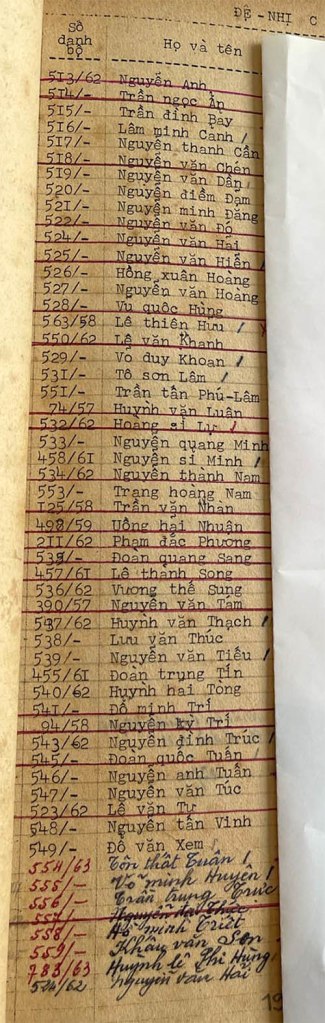 ĐỆ - NHỊ C
Số danh bộ Họ và tên
513/62 Nguyễn Anh
514/- Trần ngọc Ẩn
515/- Trần đình Bay
516/- Lâm minh Cảnh
517/- Nguyễn thanh Cần
518/- Nguyễn văn Chén
519/- Nguyễn văn Dần
520/- Nguyễn điểm Đạm
521/- Nguyễn minh Đăng
522/- Nguyễn văn Độ
524/- Nguyễn văn Hai
525/- Nguyễn văn Hiển
526/- Hồng xuân Hoàng
527/- Nguyễn văn Hoàng
528/- Vũ quốc Hùng
563/58 Lê thiện Hưu
550/62 Lê văn Khanh
529/- Võ duy Khoan
531/- Tô sơn Lâm
551/- Trần tấn Phú-Lâm
74/57 Huỳnh văn Luân
532/62 Hoàng sĩ Lự
533/- Nguyễn quang Minh
458/61 Nguyễn sĩ Minh
534/62 Nguyễn thành Nam
553/- Trang hoàng Nam
125/58 Trần văn Nhàn
498/59 Uông hải Nhuận
211/62 Phạm đắc Phương
535/- Đoàn quang Sang
457/61 Lê thành Song
536/62 Vương thế Sung
390/57 Nguyễn văn Tam
537/62 Huỳnh văn Thạch
538/- Lưu văn Thúc
539/- Nguyễn văn Tiếu
455/61 Đoàn trung Tín
540/62 Huỳnh hai Tòng
541/- Đỗ minh Trí
94/58 Nguyễn kỳ Trí
543/62 Nguyễn đình Trúc
545/- Đoàn quốc Tuấn
546/- Nguyễn anh Tuấn
547/- Nguyễn văn Túc
523/62 Lê văn Tư
548/- Nguyễn tấn Vinh
549/- Đỗ văn Xem
554/63 Tôn thất Tuân
555/- Võ minh Huyện
556/- Trần trung Trực
557/- Nguyễn đại
558/- Hồ minh Triết
559/- Khấu văn Sơn
783/63 Huỳnh lê Phi Hùng
524/62 Nguyễn văn Hải